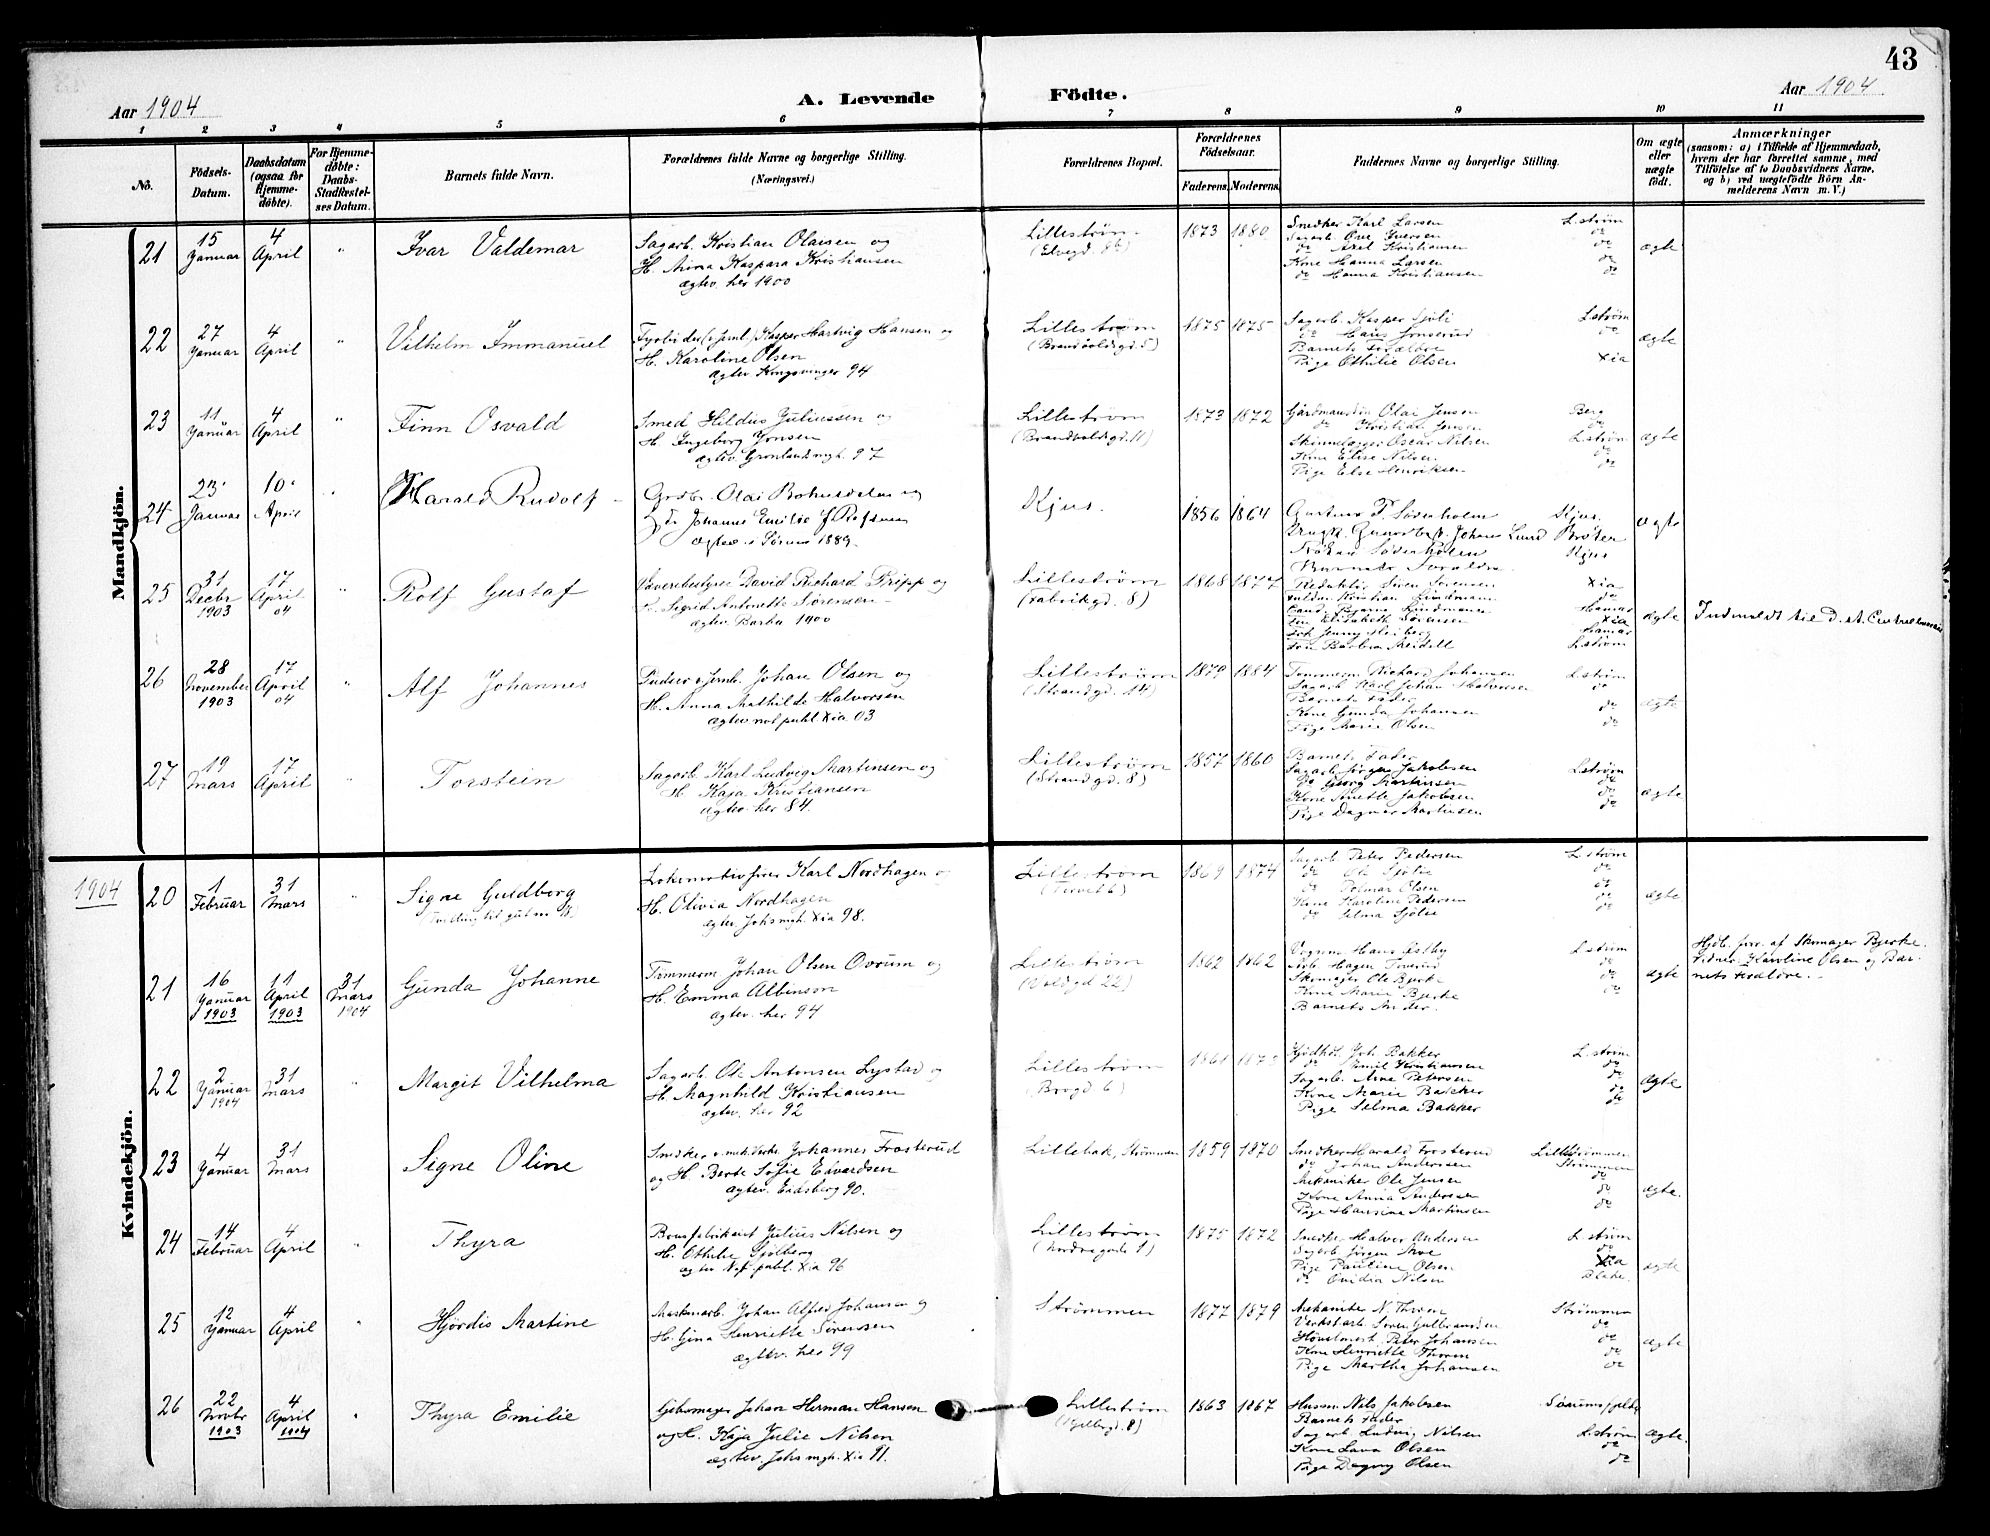 43
Aar 1904
A. Levende Födte.
Aar 1904
1 2 3 4 5 6 7 8 9 10 11
No.
Födsels-
Datum.
Daabsdatum
(ogsaa for
Hjemme-
döbte).
For Hjemme-
döbte:
Daabs-
Stadfæstel-
ses Datum.
Barnets fulde Navn.
Forældrenes fulde Navne og borgerlige Stilling.
(Næringsvei.)
Forældrenes Bopæl.
Forældrenes
Födselsaar.
Faderens. Moderens.
Faddernes Navne og borgerlige Stilling.
Om ægte
eller
uægte
födt.
Anmærkninger
(saasom: a) i Tilfælde af Hjemmedaab,
hvem der har forrettet samme, med
Tilföielse af to Daabsvidners Navne,
og b) ved uægtefödte Börn An-
melderens Navn m. V.)
Mandkjön.
21
15
Januar
4
April
"
Ivar Valdemar
Sagarb. Kristian Olausen og
H. Anna Kaspara Kristiansen
ægtev. her 1900
Lilleström
(Elvegd. 86)
1873 1880
Snedker Karl Larsen L.ström
Sagarb. Ove Iversen do
do Axel Kristiansen do
Kone Hanna Larsen do
do Hanna Kristiansen do
ægte
22
27
Januar
4
April
"
Vilhelm Immanuel
Fyrböder Kasper Hartvig Hansen og
H. Karoline Olsen
ægtev. Kongsvinger 94
Lilleström
(Brandvoldgd. 5)
1875 1875
Sagarb. Kasper L.ström
do Hans do
Barnets Forældre
Pige Othilie Olsen Xia
ægte
23
11
Januar
4
April
"
Finn Osvald
Smed Hildus Juliussen og
H. Ingeborg Jonsen
ægtev. Grönland mgh. 97
Lilleström
(Brandvoldgd. 11)
1873 1872
Olai Jensen Berg
do Kristian Jensen
Oscar Nilsen L.ström
Kone Elise Nilsen do
Pige Else Henriksen do
ægte
24
23
Januar
10
April
"
Harald Rudolf
Grdbr. Olai
Johanne Emilie
ægtev. i Sörum 1889
Kjus.
1856 1864
Kjus.
Johanne Lund Bröter
Kjus
Barnets Forældre
ægte
25
31
Decbr
1903
17
April
04
"
Rolf Gustaf
David Richard Tripp og
H. Sigrid Antonette Sörensen
ægtev. 1900
Lilleström
(Fabrikgd. 8)
1868 1877
Redaktör Sören Sörensen Xia
Kristian Lindmann do
Cand. Bjarne Lindmann Hamar
Frk. Elisabeth Sörensen Xia
Frk. Jenny Hamar
Fru Barbra L.ström
ægte
Indmeldt til D. st. Centralbureau
26
28
November
1903
17
April
04
"
Alf Johannes
Johan Olsen og
H. Anna Mathilde Halvorsen
ægtev. not. publ. Xia 03
Lilleström
(Strandgd. 14)
1879 1884
Tömmerm. Richard Johansen L.ström
Sagarb. Karl Johan Halvorsen do
Barnets Fader
Kone Gunda Johansen do
Pige Marie Olsen do
ægte
27
19
Mars
17
April
"
Torstein
Sagarb. Karl Ludvig Martinsen og
H. Kaja Kristiansen
ægtev. her 84.
Lilleström
(Strandgd. 8)
1857 1860
Barnets Fader
Sagarb. Jörgen Jakobsen L.ström
do Georg Martinsen do
Kone Anette Jakobsen do
Pige Dagmar Martinsen do
ægte
1904
Kvindekjön.
20
1
Februar
31
Mars
"
Signe Guldborg
Lokomotivförer Karl Nordhagen og
H. Olivia Nordhagen
ægtev. Johs. mgh. Xia 98.
Lilleström
(Torvet 6)
1869 1874
Sagarb. Peter Pedersen L.ström
do Ole Sjölie do
do Olsen do
Kone Karoline Pedersen do
do Selma Sjölie do
ægte
21
16
Januar
1903
11
April
1903
31
Mars
1904
Gunda Johanne
Tömmerm. Johan Olsen Ovrum og
H. Emma Albinson
ægtev. her 94
Lilleström
(Voldgd. 22)
1862 1862
Vognm. Hans Östby L.ström
Hagen do
Skomager Ole Bjerke do
Kone Marie Bjerke do
Barnets Moder.
ægte
Hjdb. forr. af Skomager Bjerke.
Vidner: Karoline Olsen og Bar-
nets Forældre.
22
2
Januar
1904
31
Mars
"
Margit Vilhelma
Sagarb. Ole Antonsen Lystad og
H. Magnhild Kristiansen
ægtev. her 92
Lilleström
(Brogd. 6)
Joh. Bakker L.ström
do Emil Kristiansen do
Sagarb. Arne Petersen do
Kone Marie Bakker do
Pige Selma Bakker do
ægte
23
4
Januar
31
Mars
Signe Oline
Snedker Johannes Frosterud
og H. Berte Sofie Edvardsen
ægtev. Eidsberg 90.
Lillebak, Strömmen
1859 1870
Snedker Harald Frosterud Lilleströmmen
do Johan Anderssen Strömmen
Mekaniker Ole Jensen do
Kone Anna Andersen do
Pige Hansine Martinsen do
ægte.
24
14
Februar
4
April
"
Thyra
Julius Nilsen og
H. Othilie Sjölberg
ægtev. Not. publ. Xia 96
Lilleström
(Nordregade 1)
1875 1872
Snedker Halvor Andersen L.ström
Sagarb. Jörgen Moe do
Pige Pauline Olsen Xia
do Ovidia Nilsen
ægte
25
12
Januar
4
April
"
Hjördis Martine
Johan Alfred Johansen og
H. Gina Henriette Sörensen
ægtev. her 99
Strömmen
1877 1879
Mekaniker N. Thoren Strömmen
Verkstarb. Soren Gulbrandsen do
Hövelmest. Peter Johansen do
Kone Henriette Thoren do
Pige Martha Johansen do
ægte
26
22
Novbr
1903
4
April
1904
"
Thyra Emilie
Johan Herman Hansen
og H. Kaja Julie Nilsen
ægtev. Johs. mgh. Xia 91.
Lilleström
1863 1867
Husm. Nils Jakobsen
Barnets Fader
Sagarb. Ludvig Nilsen L.ström
Kone Lava Olsen do
Pige Dagny Olsen do
ægte.